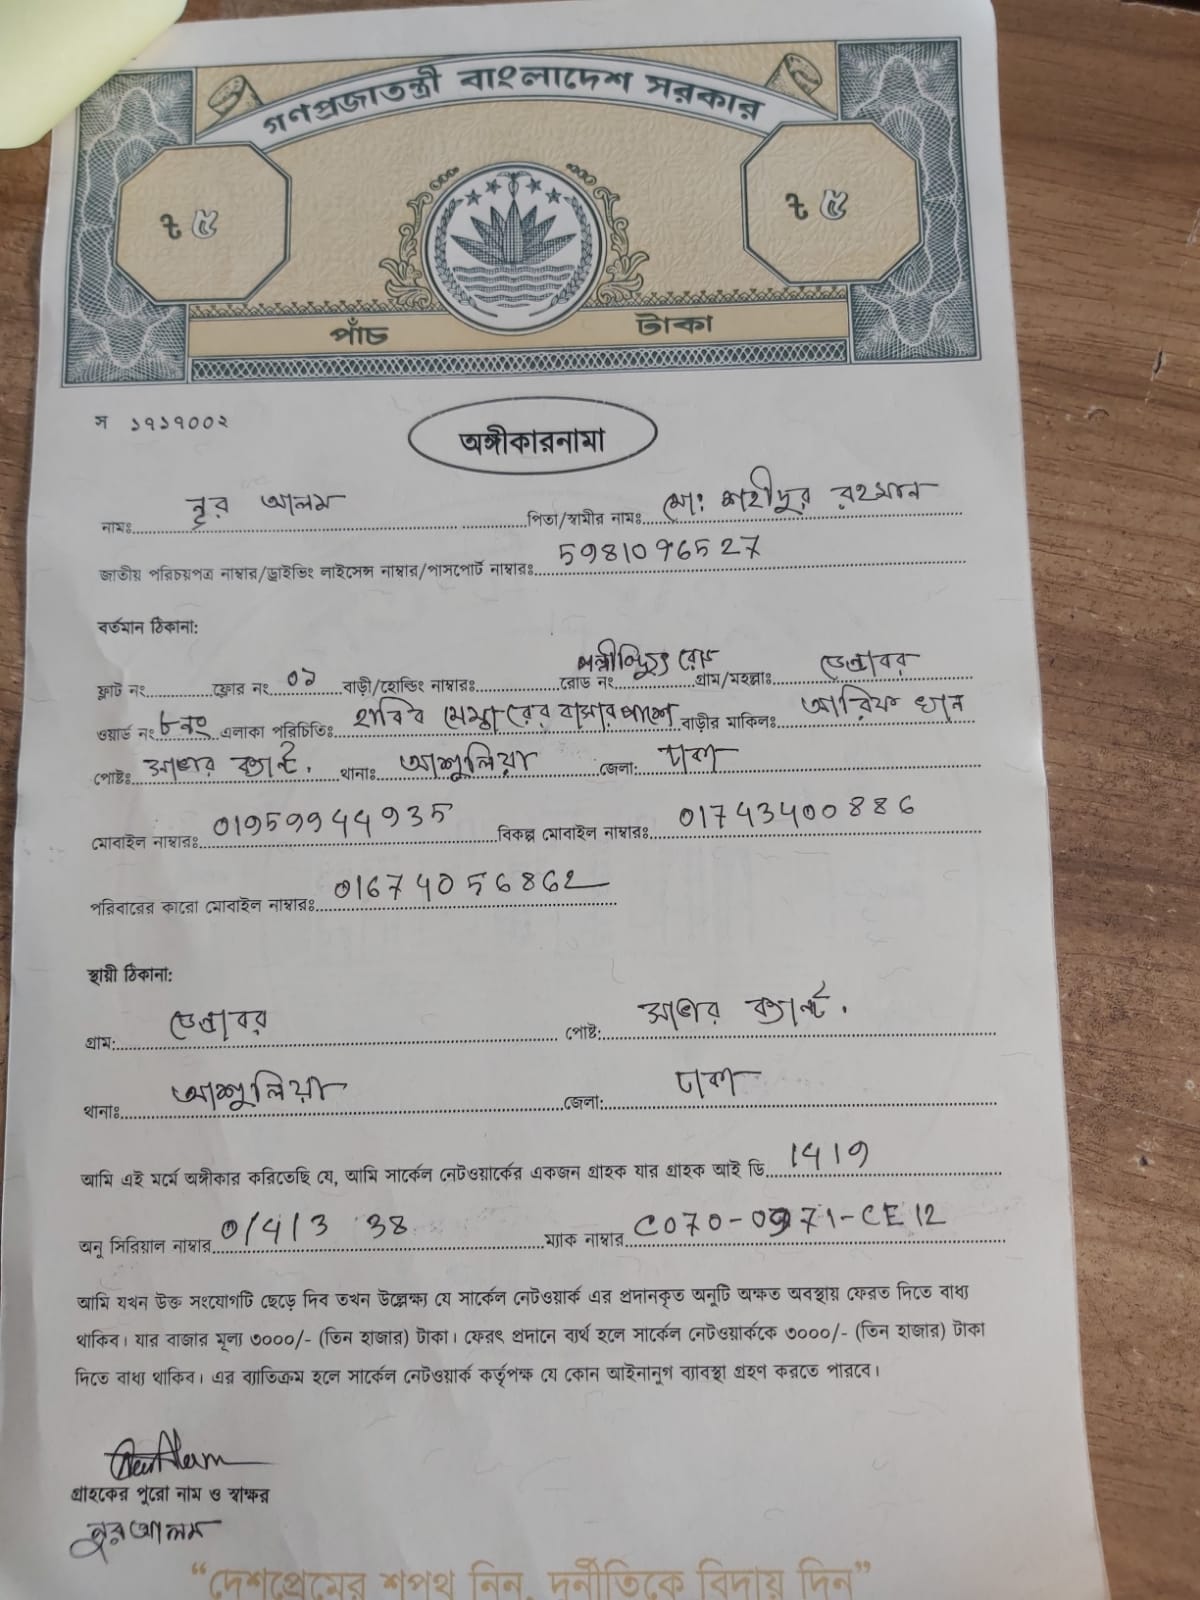 গণপ্রজাতন্ত্রী বাংলাদেশ সরকার
৳ ৫ ৳ ৫
পাঁচ টাকা
স ১৭১৭০০২
অঙ্গীকারনামা
নামঃ নূর আলম পিতা/স্বামীর নামঃ মোঃ শহীদুর রহমান
জাতীয় পরিচয়পত্র নাম্বার/ড্রাইভিং লাইসেন্স নাম্বার/পাসপোর্ট নাম্বারঃ 5981096527
বর্তমান ঠিকানা:
ফ্লাট নং ফ্লোর নং ০১ বাড়ী/হোল্ডিং নাম্বারঃ রোড নং পল্লীবিদ্যুৎ রোড গ্রাম/মহল্লাঃ ডেন্ডাবর
ওয়ার্ড নং ৮ নং এলাকা পরিচিতিঃ হাবিব মেম্বারের বাসার পাশে বাড়ীর মালিকঃ আরিফ খান
পোষ্টঃ সাভার ক্যান্ট. থানাঃ আশুলিয়া জেলা: ঢাকা
মোবাইল নাম্বারঃ 01959944935 বিকল্প মোবাইল নাম্বারঃ 01743400886
পরিবারের কারো মোবাইল নাম্বারঃ 01674056862
স্থায়ী ঠিকানা:
গ্রাম: ডেন্ডাবর পোষ্ট: সাভার ক্যান্ট.
থানাঃ আশুলিয়া জেলা: ঢাকা
আমি এই মর্মে অঙ্গীকার করিতেছি যে, আমি সার্কেল নেটওয়ার্কের একজন গ্রাহক যার গ্রাহক আই ডি 1419
অনু সিরিয়াল নাম্বার 0/4/3 38 ম্যাক নাম্বার C070-0971-CE12
আমি যখন উক্ত সংযোগটি ছেড়ে দিব তখন উল্লেক্ষ্য যে সার্কেল নেটওয়ার্ক এর প্রদানকৃত অনুটি অক্ষত অবস্থায় ফেরত দিতে বাধ্য
থাকিব। যার বাজার মূল্য ৩০০০/- (তিন হাজার) টাকা। ফেরৎ প্রদানে ব্যর্থ হলে সার্কেল নেটওয়ার্ককে ৩০০০/- (তিন হাজার) টাকা
দিতে বাধ্য থাকিব। এর ব্যাতিক্রম হলে সার্কেল নেটওয়ার্ক কর্তৃপক্ষ যে কোন আইনানুগ ব্যাবস্থা গ্রহণ করতে পারবে।
গ্রাহকের পুরো নাম ও স্বাক্ষর
নুর আলম
“দেশপ্রেমের শপথ নিন, দুর্নীতিকে বিদায় দিন”